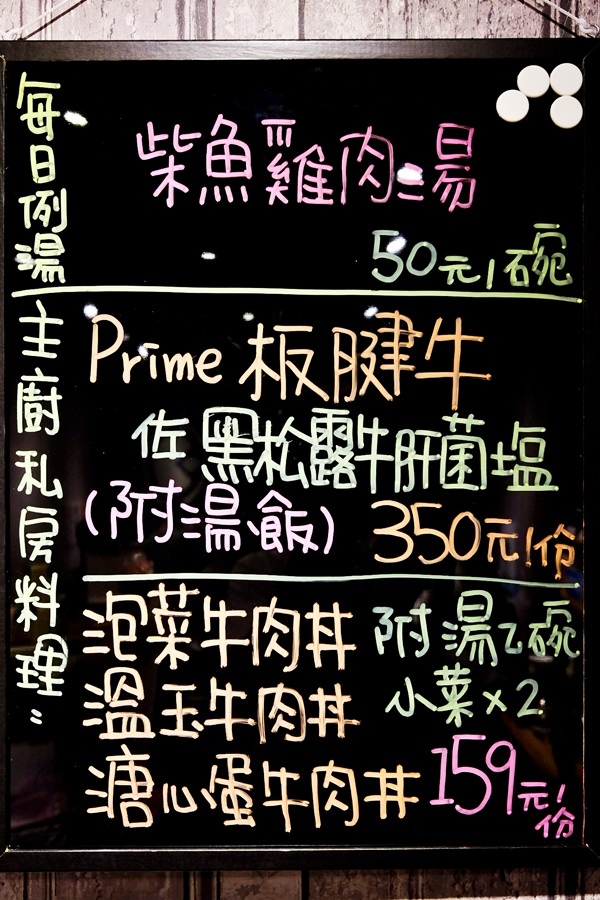 每日例湯
柴魚雞肉湯
50元/碗
主廚私房料理:
Prime 板腱牛
佐黑松露牛肝菌塩
(附湯、飯)
350元/份
泡菜牛肉丼
溫玉牛肉丼
溏心蛋牛肉丼
附湯乙碗
小菜×2
159元/份